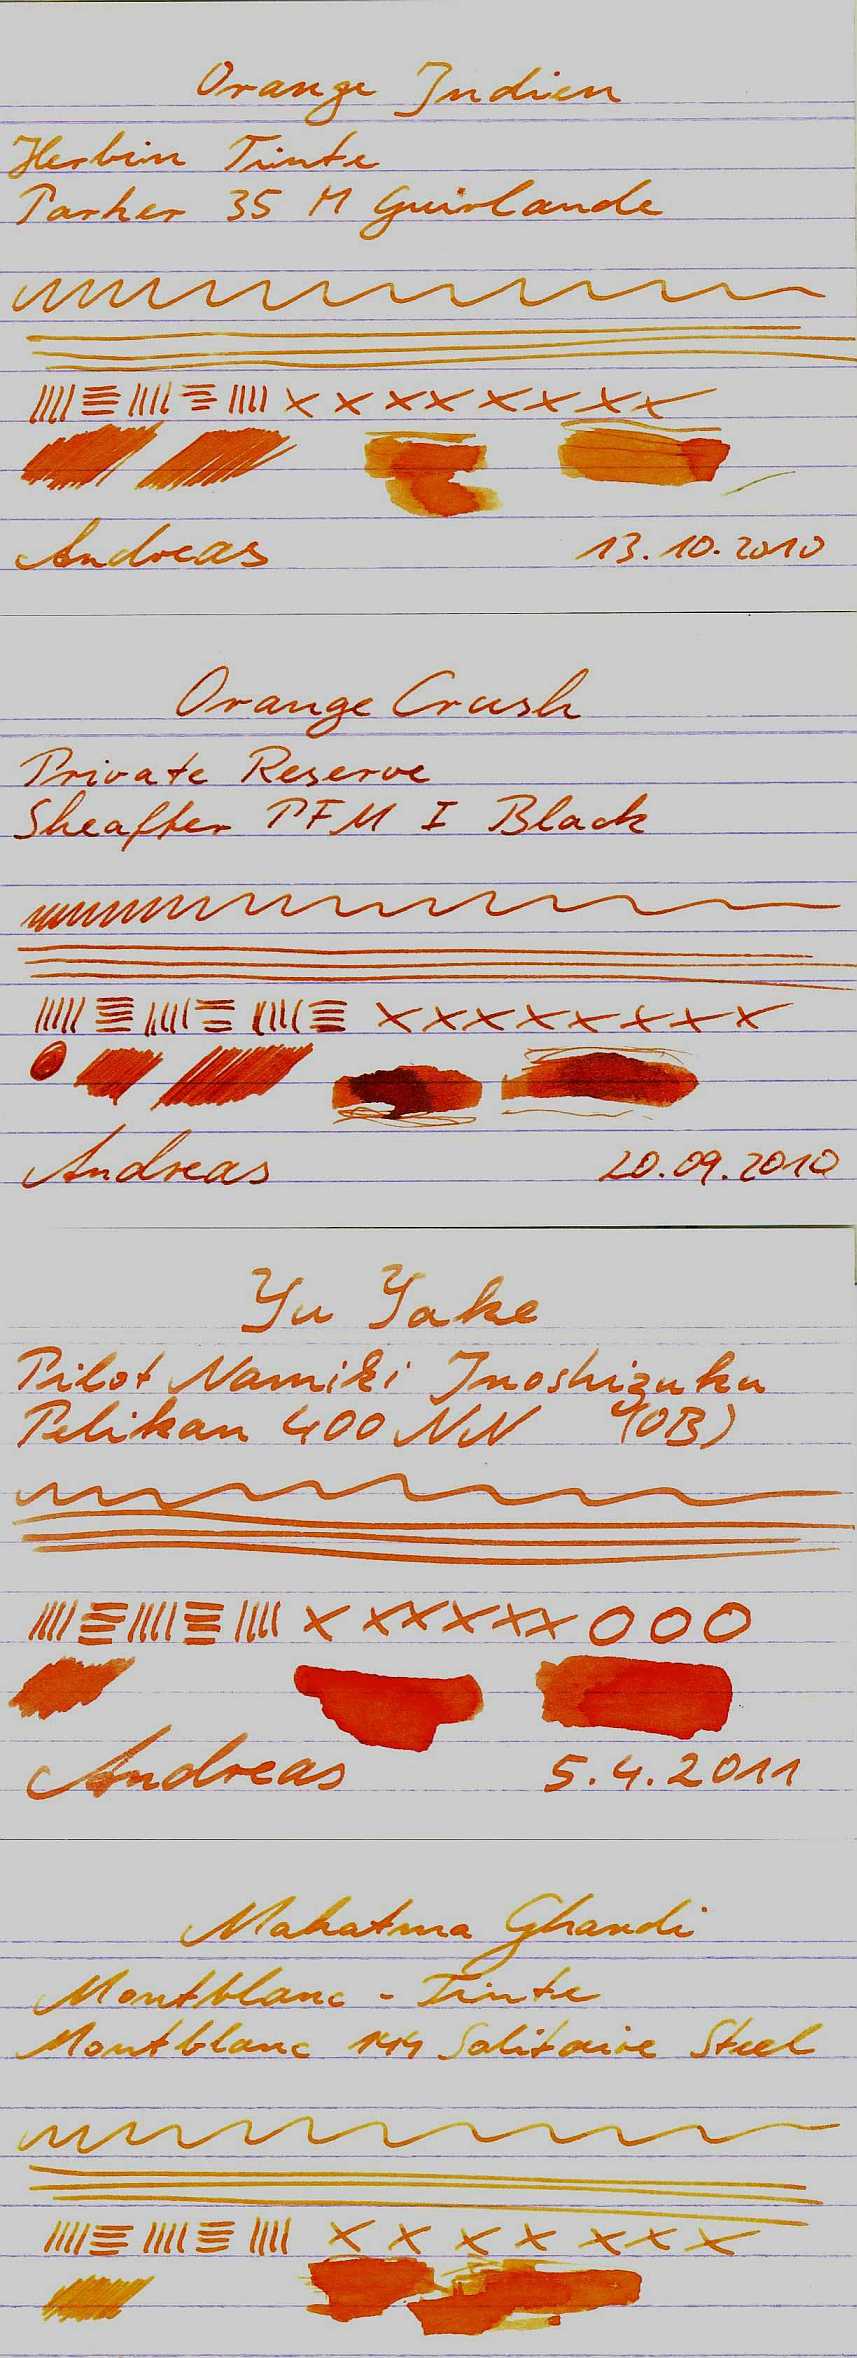 Orange Indien
Herbin Tinte
Parker 35 M Guirlande
Andreas 13.10.2010
Orange Crush
Private Reserve
Sheaffer PFM I Black
Andreas 20.09.2010
Yu Yake
Pilot Namiki Inoshizuku
Pelikan 400 NN (OB)
Andreas 5.4.2011
Mahatma Ghandi
Montblanc - Tinte
Montblanc 144 Solitaire Steel